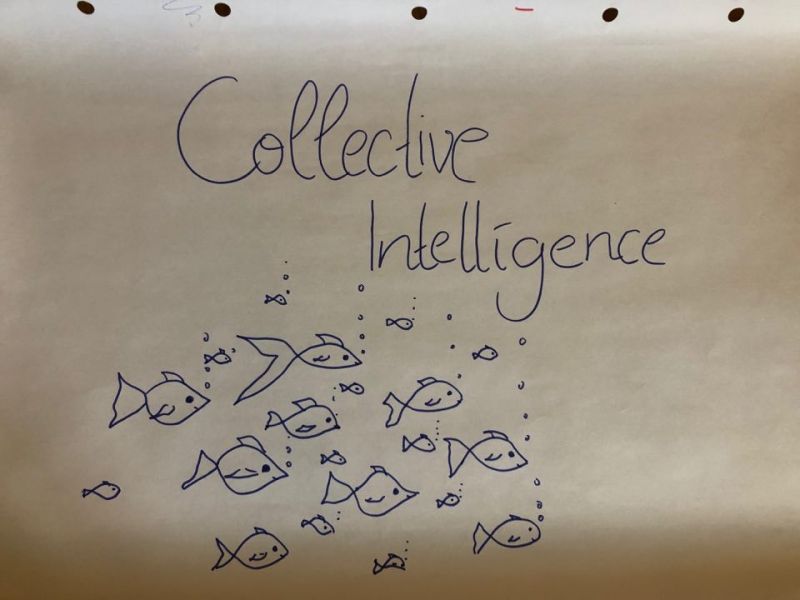 Collective
Intelligence